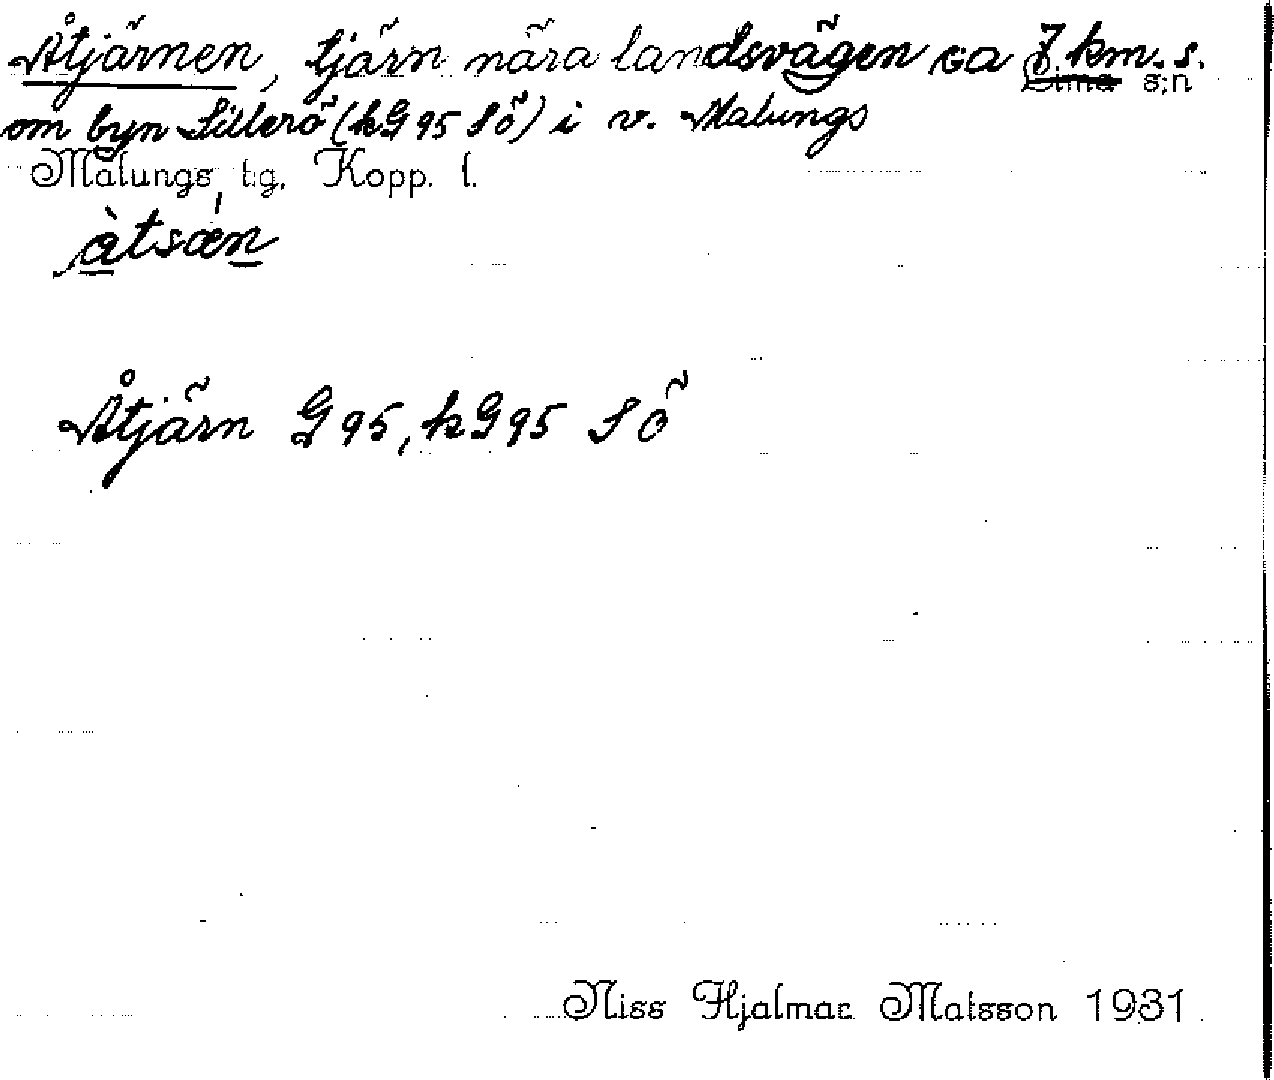 Åtjärnen, tjärn nära landsvägen ca 7 km. s.
Lima s:n
om byn Sillerö (kG 95 SÖ) i v. Malungs
Malungs t:g. Kopp. l.
àtsǽn
Åtjärn G 95, kG 95 SÖ
Niss Hjalmar Matsson 1931